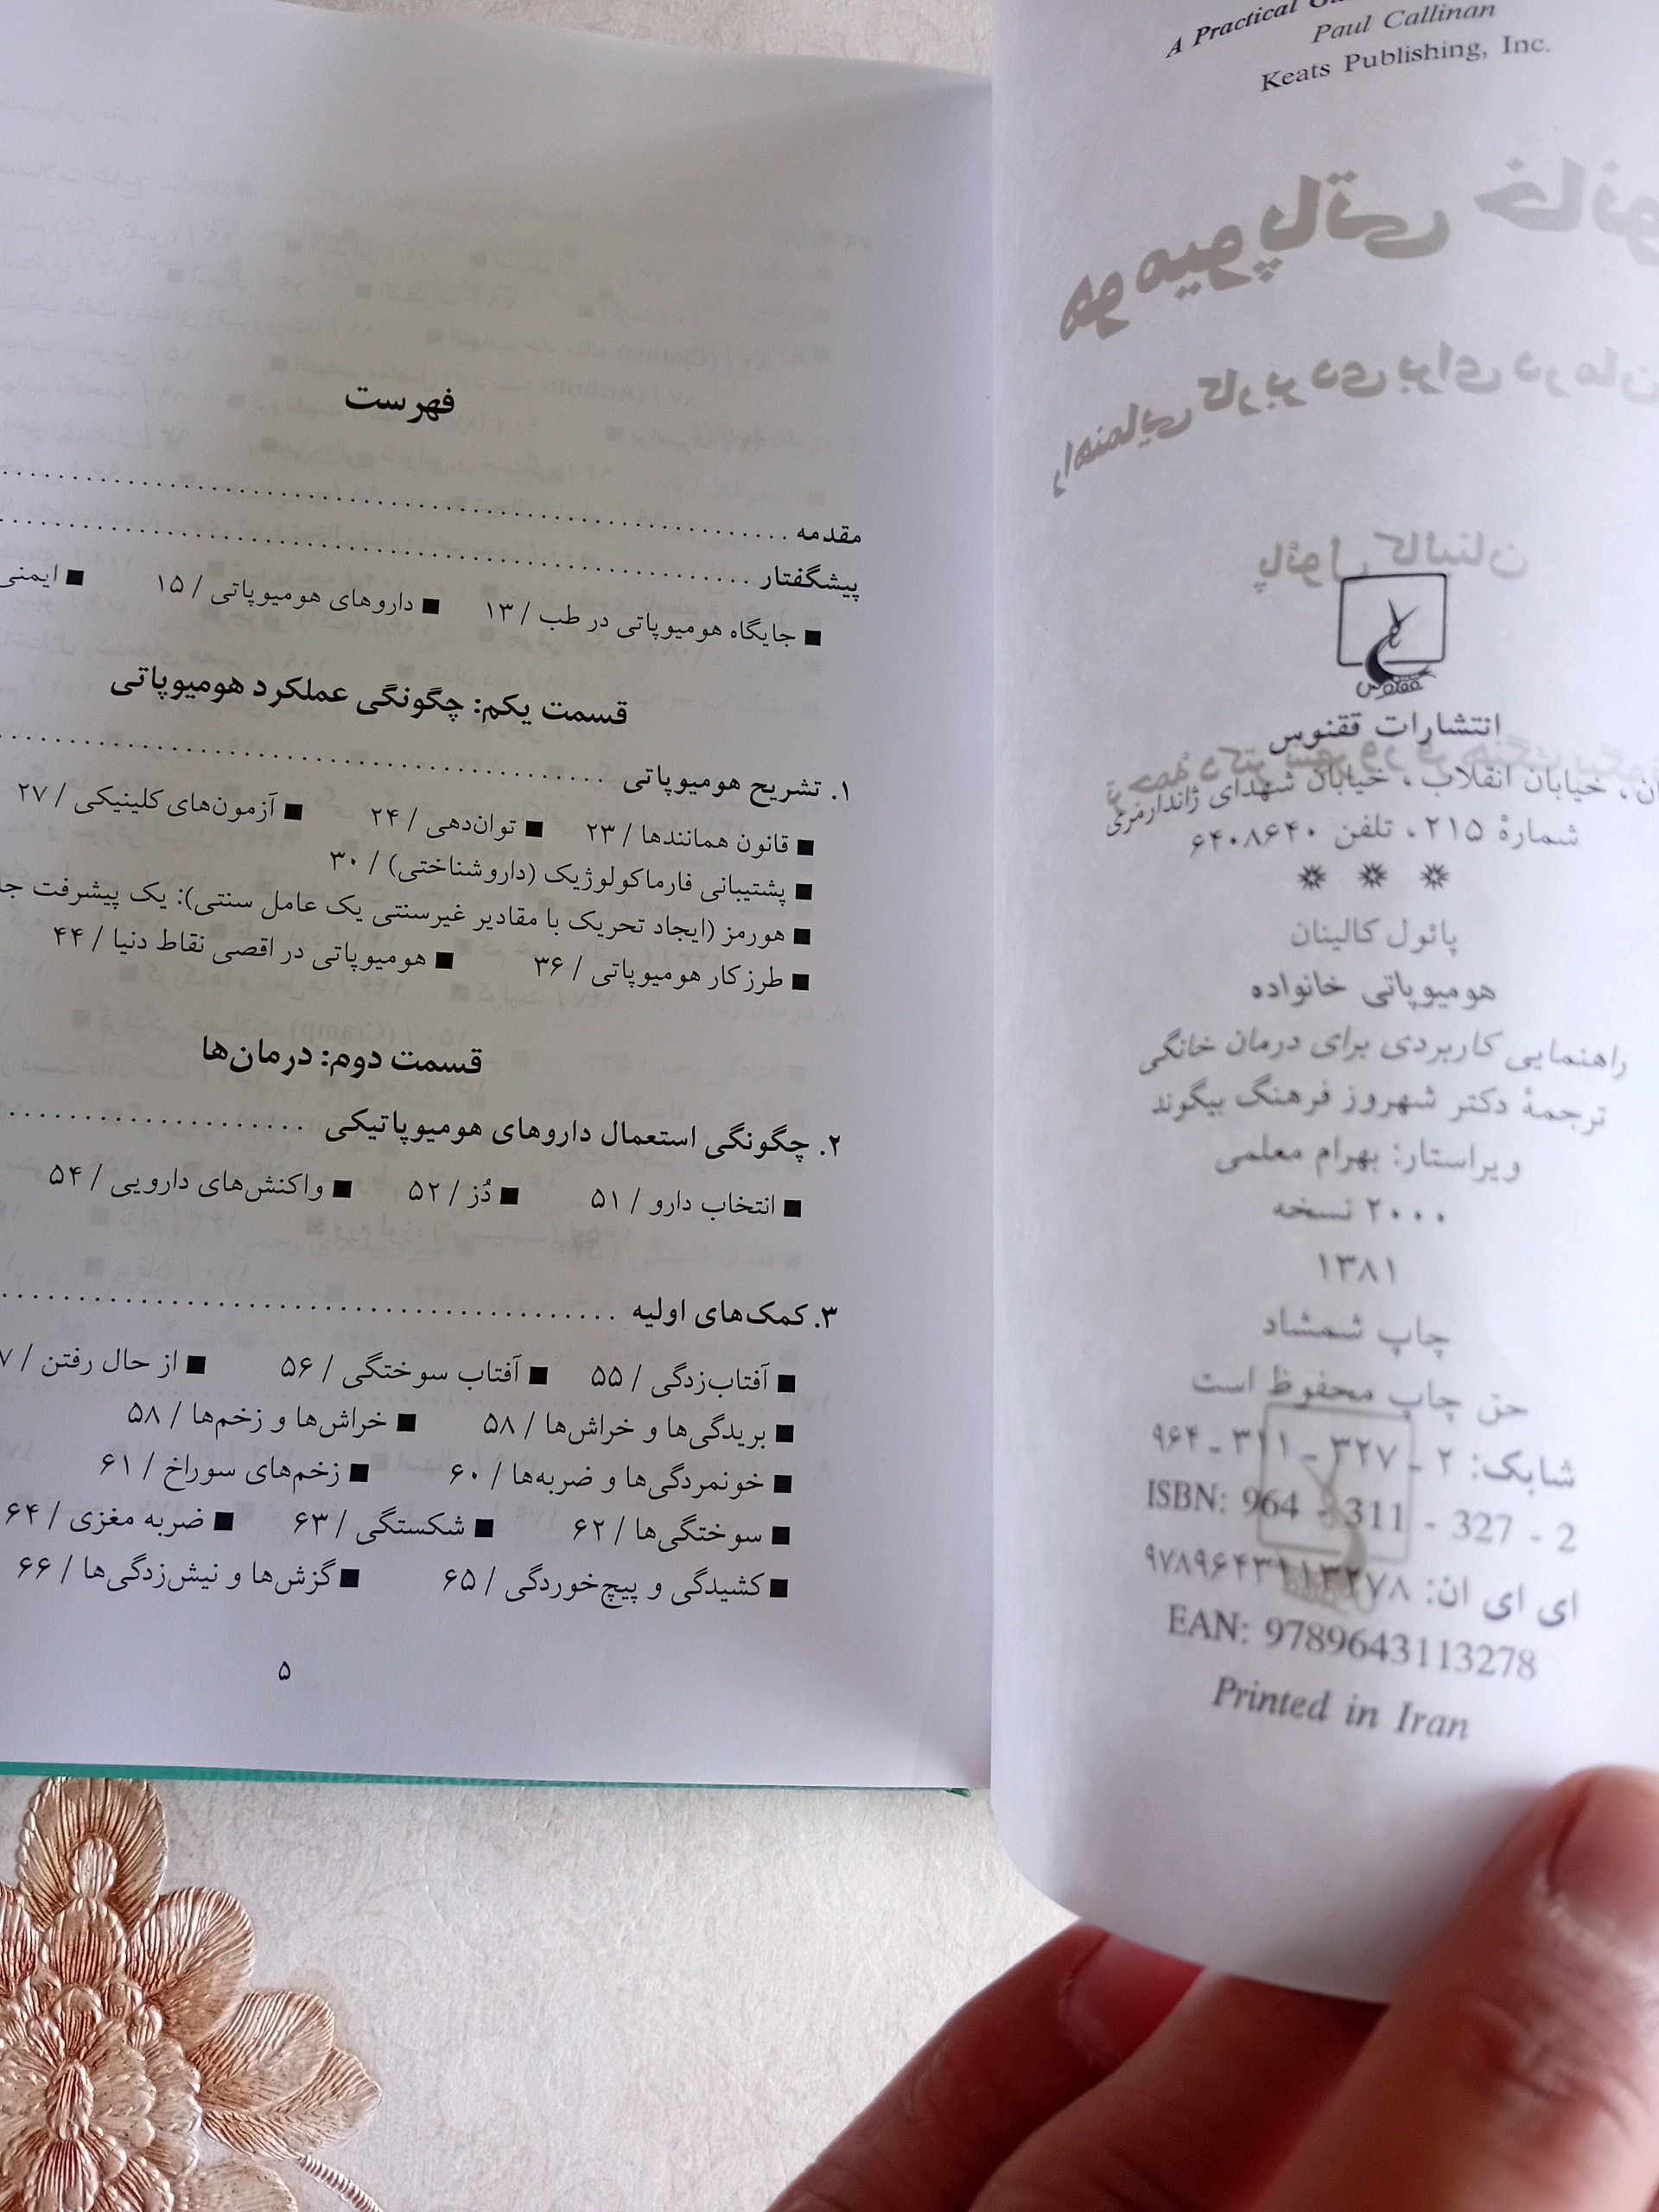 A Practical
Paul Callinan
Keats Publishing, Inc.
ققنوس
انتشارات ققنوس
خیابان انقلاب، خیابان شهدای ژاندارمری
شمارهٔ ۲۱۵، تلفن ۶۴۰۸۶۴۰
پائول کالینان
هومیوپاتی خانواده
راهنمایی کاربردی برای درمان خانگی
ترجمهٔ دکتر شهروز فرهنگ بیگوند
ویراستار: بهرام معلمی
۲۰۰۰ نسخه
۱۳۸۱
چاپ شمشاد
حق چاپ محفوظ است
شابک: ۲ - ۳۲۷ - ۳۱۱ - ۹۶۴
ISBN: 964 - 311 - 327 - 2
ای ای ان: ۹۷۸۹۶۴۳۱۱۳۲۷۸
EAN: 9789643113278
Printed in Iran
فهرست
مقدمه
پیشگفتار
■ جایگاه هومیوپاتی در طب / ۱۳ ■ داروهای هومیوپاتی / ۱۵ ■ ایمنی
قسمت یکم: چگونگی عملکرد هومیوپاتی
۱. تشریح هومیوپاتی
■ قانون همانندها / ۲۳ ■ توان‌دهی / ۲۴ ■ آزمون‌های کلینیکی / ۲۷
■ پشتیبانی فارماکولوژیک (داروشناختی) / ۳۰
■ هورمز (ایجاد تحریک با مقادیر غیرسنتی یک عامل سنتی): یک پیشرفت
■ طرز کار هومیوپاتی / ۳۶ ■ هومیوپاتی در اقصی نقاط دنیا / ۴۴
قسمت دوم: درمان‌ها
۲. چگونگی استعمال داروهای هومیوپاتیکی
■ انتخاب دارو / ۵۱ ■ دُز / ۵۲ ■ واکنش‌های دارویی / ۵۴
۳. کمک‌های اولیه
■ آفتاب‌زدگی / ۵۵ ■ آفتاب سوختگی / ۵۶ ■ از حال رفتن /
■ بریدگی‌ها و خراش‌ها / ۵۸ ■ خراش‌ها و زخم‌ها / ۵۸
■ خونمردگی‌ها و ضربه‌ها / ۶۰ ■ زخم‌های سوراخ / ۶۱
■ سوختگی‌ها / ۶۲ ■ شکستگی / ۶۳ ■ ضربه مغزی / ۶۴
■ کشیدگی و پیچ‌خوردگی / ۶۵ ■ گزش‌ها و نیش‌زدگی‌ها / ۶۶
۵